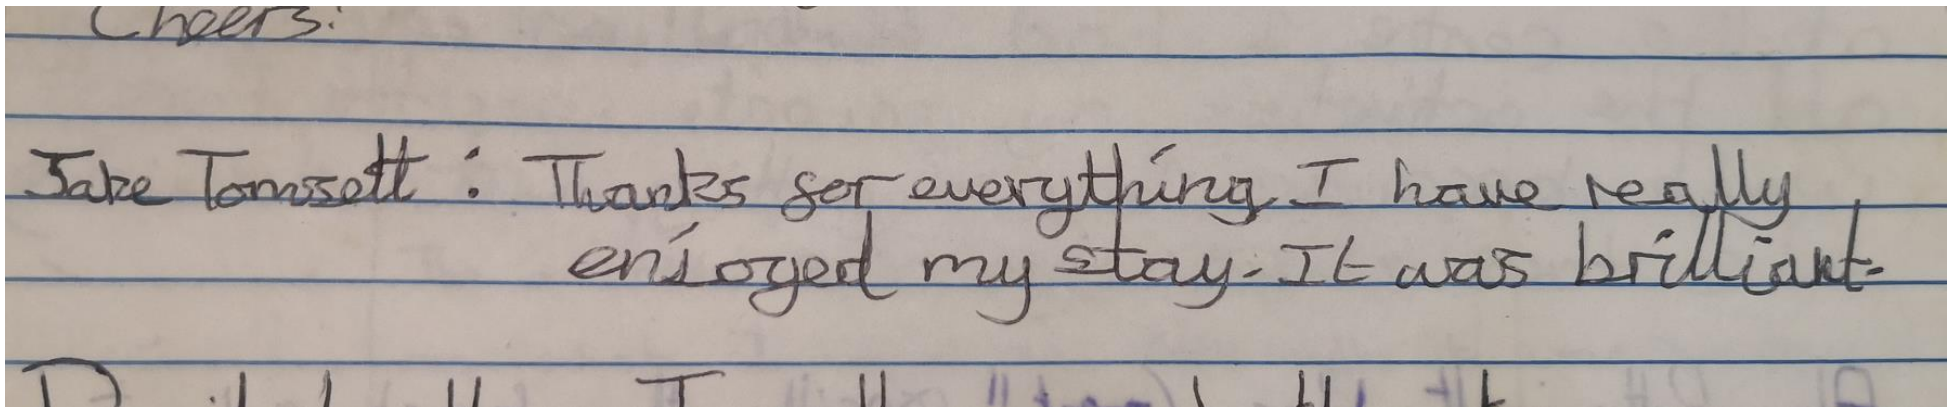 Cheers.
Jake Tomssett : Thanks for everything. I have really
enjoyed my stay. It was brilliant.